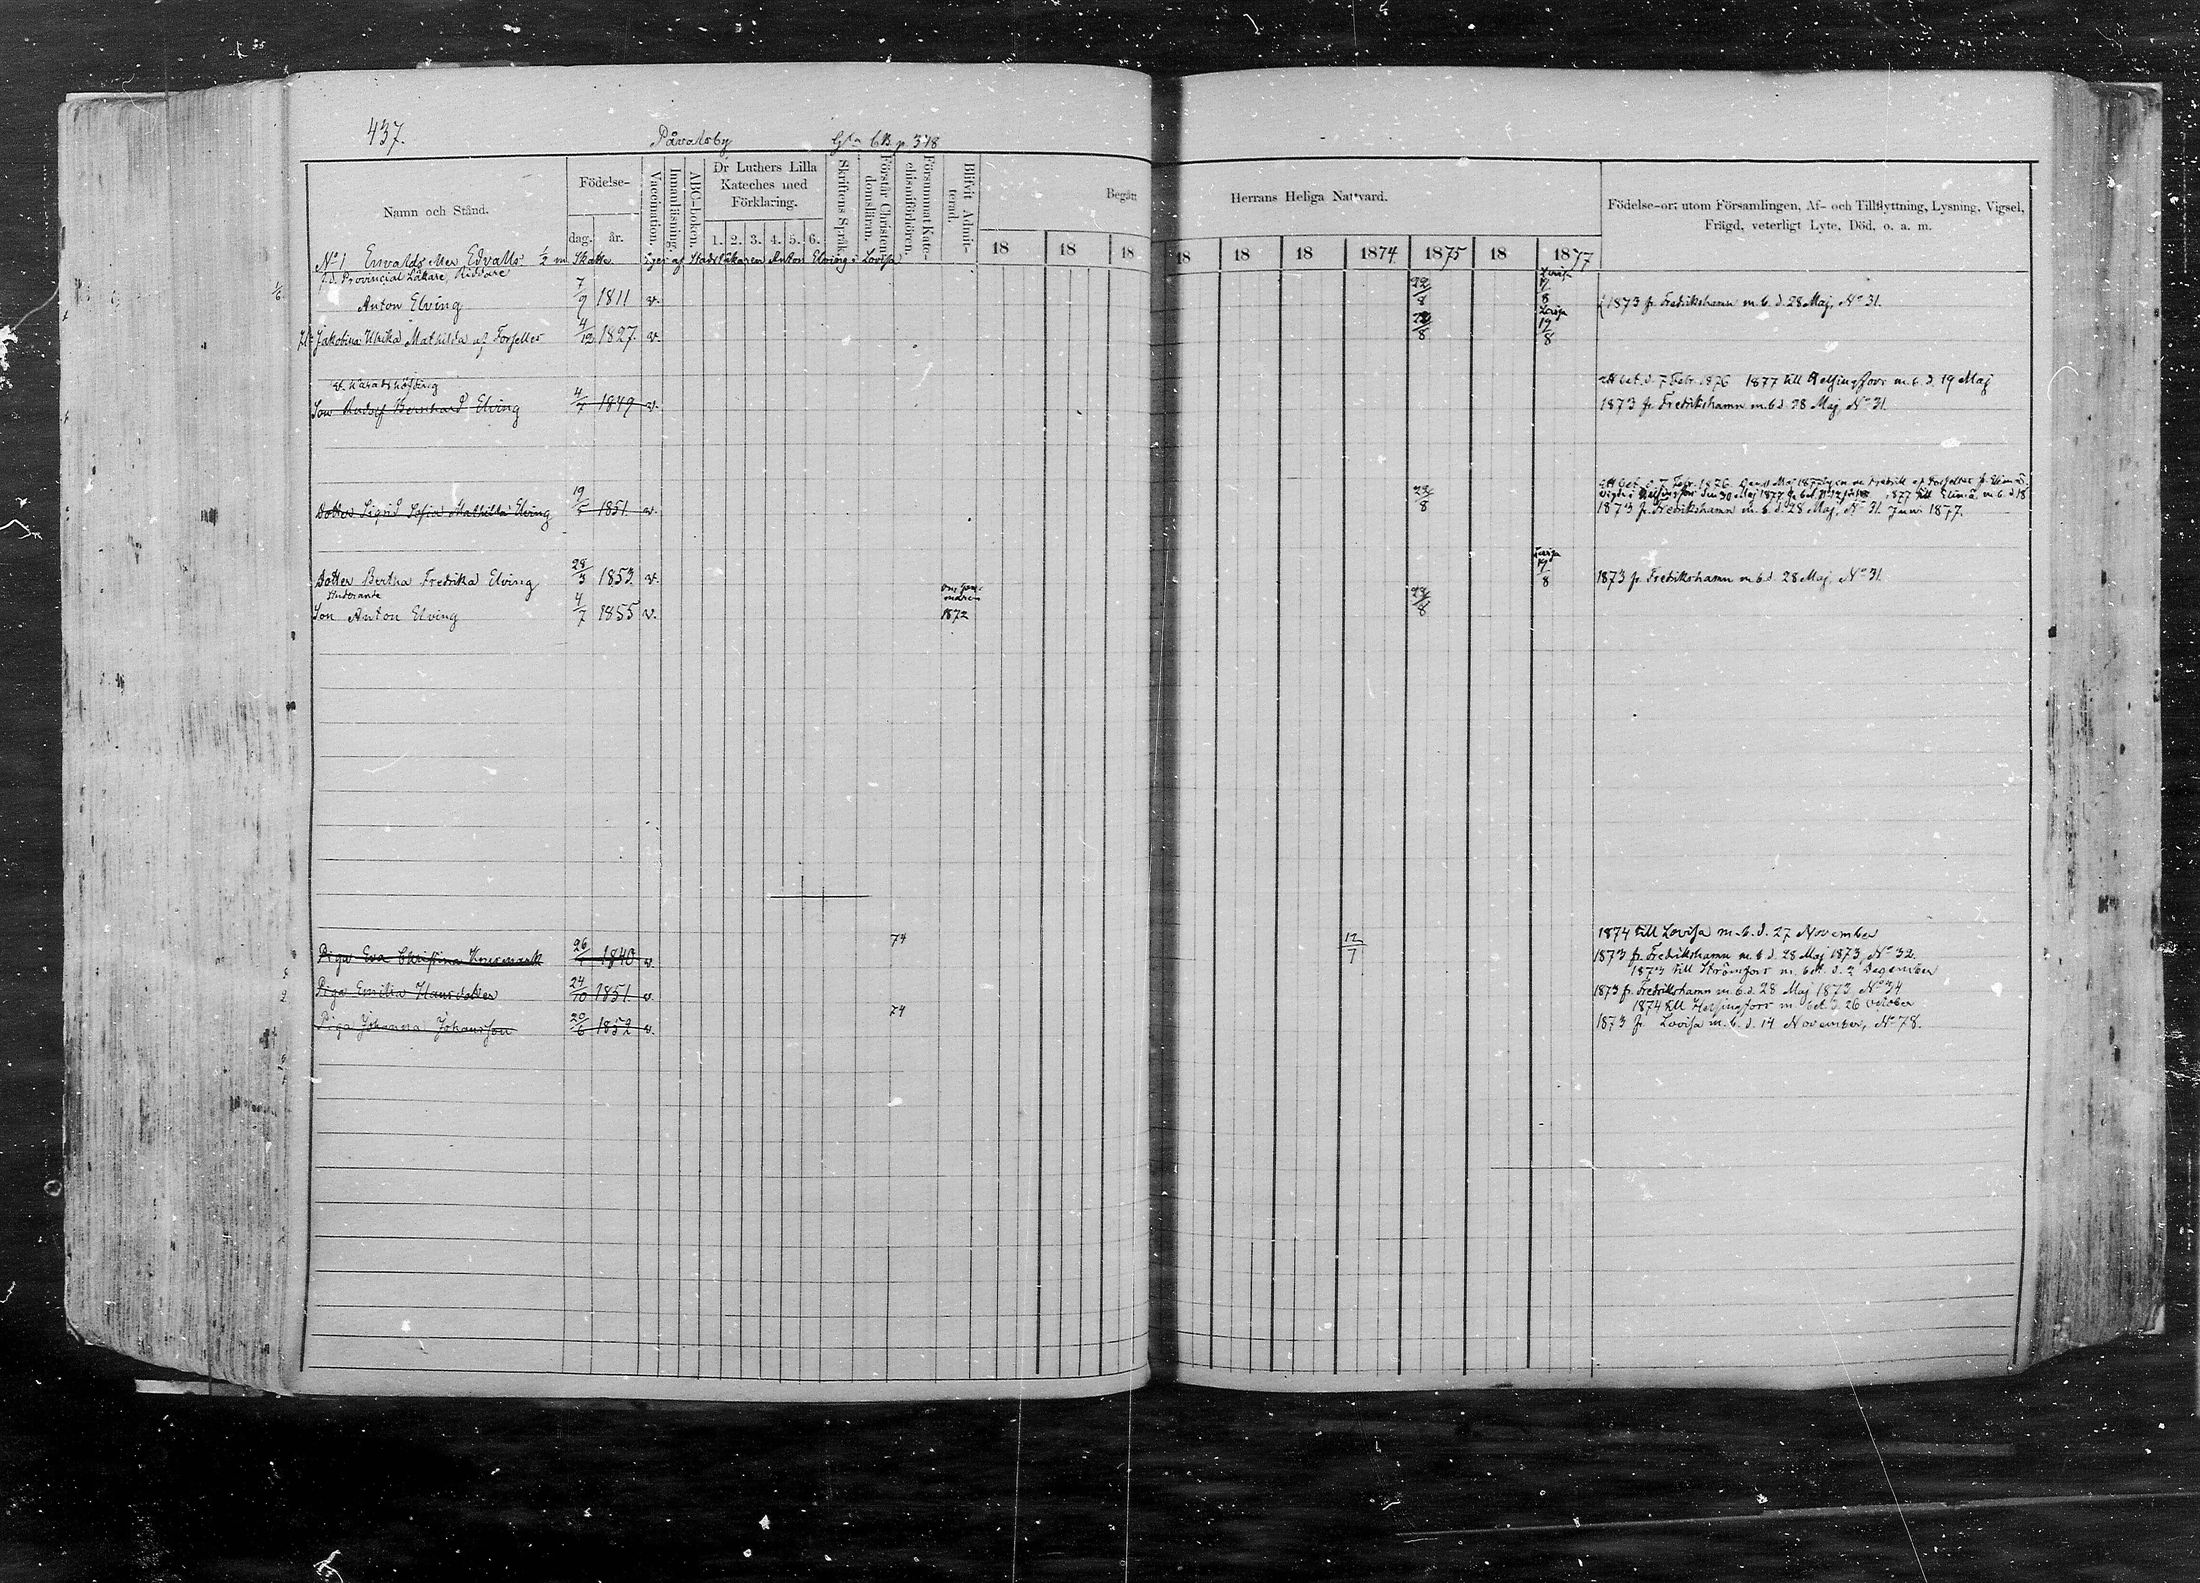 437.
Påvalsby Gla CB. p. 318
Namn och Stånd.
Födelse-
dag. år.
Vaccination.
Innanläsning.
ABC-boken.
Dr Luthers Lilla Kateches med Förklaring.
1. 2. 3. 4. 5. 6.
Skriftens Språk.
Förstår Christendomsläran.
Försummat Katechismiförhören.
Blifvit Admitterad.
Begått Herrans Heliga Nattvard.
18 18 18 18 18 18 1874 1875 18 1877
Födelse-ort utom Församlingen, Af- och Tillflyttning, Lysning, Vigsel,
Frägd, veterligt Lyte, Död, o. a. m.
No 1 Envalds eller Edvalls 1/2 m Skatte Eges af Stadsläkaren Anton Elving i Lovisa
f.d. Provincial Läkare, Riddare
Anton Elving 7/9 1811 v. 22/8 Lovisa 19/8 1873 fr. Fredrikshamn m. b. d. 28 Maj, No 31.
Jakobina Ulrika Mathilda af Forselles 4/12 1827. v. 22/8 Lovisa 19/8
v. Häradshöfding att bet. d. 7 Febr. 1876 1877 till Helsingfors m. b. d. 19 Maj
Son Rudolf Bernhard Elving 4/7 1849 v. 1873 fr. Fredrikshamn m. b. d. 28 Maj, No 31.
att bet. d. 7 Febr. 1876
1877 till Elimä m. b. d 18
Dotter Sigrid Sofia Mathilda Elving 1851. v. 22/8 1873 fr. Fredrikshamn m. b. d. 28 Maj, No 31. Juni 1877.
Dotter Bertha Fredrika Elving 28/3 1853. v. Lovisa 19/8 1873 fr. Fredrikshamn m. b. d. 28 Maj, No 31.
Studerande
Son Anton Elving 4/7 1855 v. 1872 22/8
1874 till Lovisa m. b. d. 27 November
Piga Eva Christina 1840 v. 74 12/7 1873 fr. Fredrikshamn m. b. d. 28 Maj 1873, No 32.
1873 till Strömfors m. bet. d. 2 December
Piga Emilia Hansdotter 24/10 1851. v. 1873 fr. Fredrikshamn m. b. d. 28 Maj 1873 No 34
1874 till Helsingfors m. bet. d. 26 October
Piga Johanna Johansson 20/6 1852 v. 74 1873 fr. Lovisa m. b. d. 14 November, No 78.